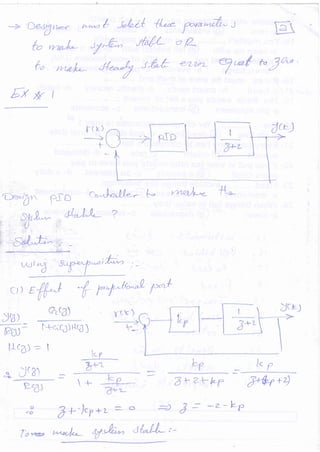 → Designer must select these parameters
to make system stable OR
to make steady state error equal to zero.
EX 1
r(k) + - PID 1/(z+2) y(k)
Design PID Controller to make the
system stable ?
Solution :-
using superposition :-
(1) Effect of proportional part
y(z)/R(z) = G(z)/(1+G(z)H(z)) r(k) + - kp 1/(z+2) y(k)
H(z) = 1
∴ y(z)/R(z) = (kp/(z+2))/(1 + kp/(z+2)) = kp/(z+2+kp) = kp/(z+(kp+2))
∴ z+kp+2 = 0 ⇒ z = -2-kp
To make system stable :-